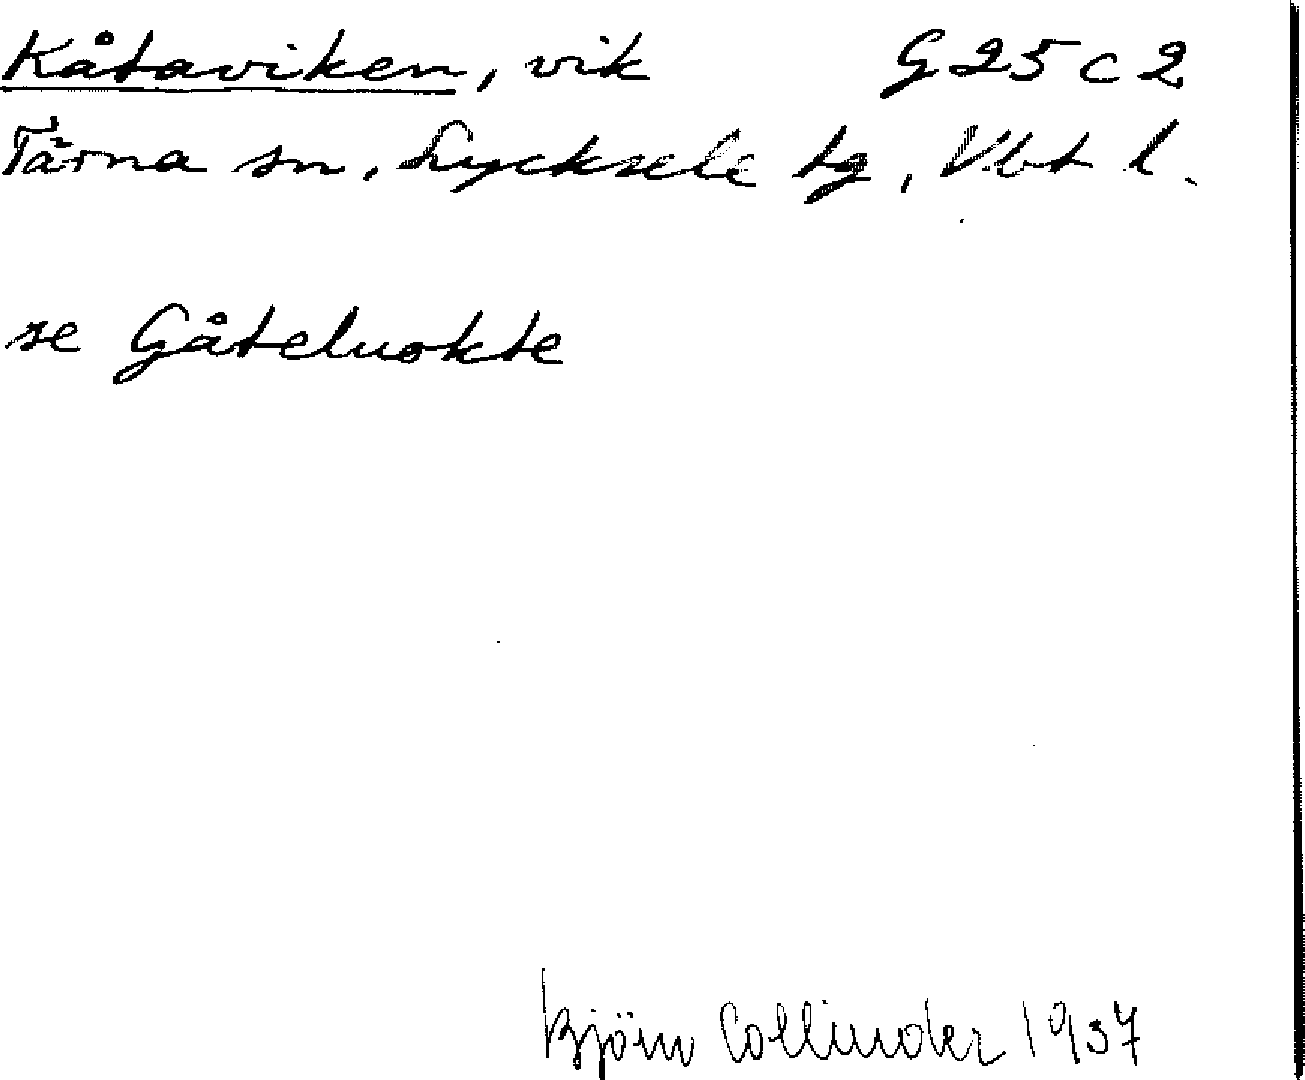 Kåtaviken, vik G 25 c 2
Tärna sn, Lycksele tg, Vbt l.
se Gåteluokte
Björn Collinder 1937